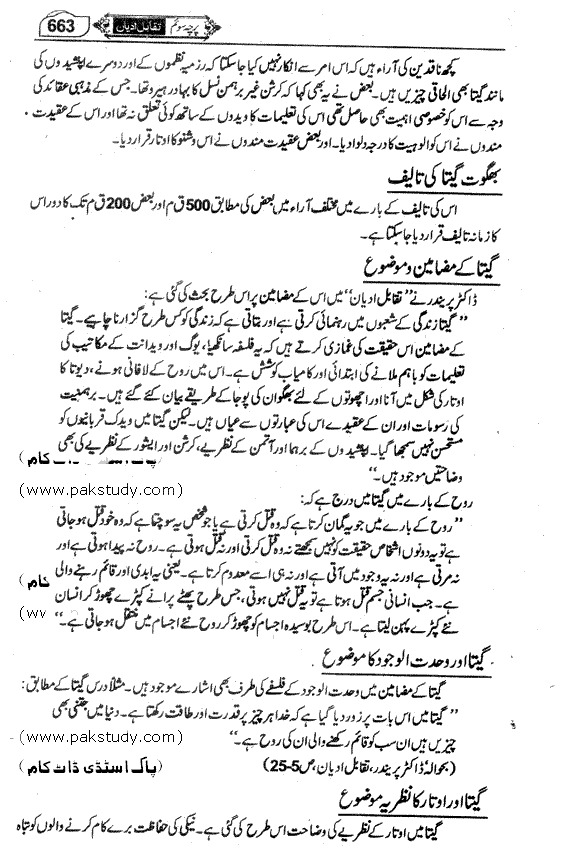 پرچہ سوئم تقابل ادیان 663
کچھ ناقدین کی آراء ہیں کہ اس امر سے انکار نہیں کیا جاسکتا کہ رزمیہ نظموں کے اور دوسرے اپنیشدوں کی
مانند گیتا بھی الحاقی چیزیں ہیں۔ بعض نے یہ بھی کہا کہ کرشن غیر برہمن نسل کا بہادر ہیرو تھا۔ جس کے مذہبی عقائد کی
وجہ سے اس کو خصوصی اہمیت بھی حاصل تھی اس کی تعلیمات کا ویدوں کے ساتھ کوئی تعلق نہ تھا اور اس کے عقیدت
مندوں نے اس کو الوہیت کا درجہ دلوا دیا۔ اور بعض عقیدت مندوں نے اس وشنو کا اوتار قرار دیا۔
بھگوت گیتا کی تالیف
اس کی تالیف کے بارے میں مختلف آراء میں بعض کی مطابق 500 ق م اور بعض 200 ق م تک کا دور اس
کا زمانہ تالیف قرار دیا جاسکتا ہے۔
گیتا کے مضامین و موضوع
ڈاکٹر پریندر نے ”تقابل ادیان“ میں اس کے مضامین پر اس طرح بحث کی گئی ہے:
”گیتا زندگی کے شعبوں میں رہنمائی کرتی ہے اور بتاتی ہے کہ زندگی کو کس طرح گزارنا چاہیے۔ گیتا
کے مضامین اس حقیقت کی غمازی کرتے ہیں کہ یہ فلسفہ سانکھیا، یوگ اور ویدانت کے مکاتیب کی
تعلیمات کو باہم ملانے کی ابتدائی اور کامیاب کوشش ہے۔ اس میں روح کے لافانی ہونے، دیوتا کا
اوتار کی شکل میں آنا اور اچھوتوں کے لئے بھگوان کی پوجا کے طریقے بیان کئے گئے ہیں۔ برہمنیت
کی رسومات اور ان کے عقیدے اس کی عبارتوں سے عیاں ہیں۔ لیکن گیتا میں ویدک قربانیوں کو
مستحسن نہیں سمجھا گیا۔ اپنیشدوں کے برہما اور آتمن کے نظریے، کرشن اور ایشور کے نظریے کی بھی
وضاحتیں موجود ہیں۔“
(www.pakstudy.com)
روح کے بارے میں گیتا میں درج ہے کہ:
”روح کے بارے میں جو یہ گمان کرتا ہے کہ وہ قتل کرتی ہے یا جو شخص یہ سوچتا ہے کہ وہ خود قتل ہو جاتی
ہے تو یہ دونوں اشخاص حقیقت کو نہیں سمجھتے نہ وہ قتل کرتی اور نہ قتل ہوتی ہے۔ روح نہ پیدا ہوتی ہے اور
نہ مرتی ہے اور نہ یہ وجود میں آتی ہے اور نہ ہی اسے معدوم کرتا ہے۔ یعنی یہ ابدی اور قائم رہنے والی
ہے۔ جب انسانی جسم قتل ہوتا ہے تو یہ قتل نہیں ہوتی، جس طرح پھٹے پرانے کپڑے چھوڑ کر انسان
نئے کپڑے پہن لیتا ہے۔ اس طرح بوسیدہ اجسام کو چھوڑ کر روح نئے اجسام میں منتقل ہو جاتی ہے۔“
گیتا اور وحدت الوجود کا موضوع
گیتا کے مضامین میں وحدت الوجود کے فلسفے کی طرف بھی اشارے موجود ہیں۔ مثلاً درس گیتا کے مطابق:
”گیتا میں اس بات پر زور دیا گیا ہے کہ خدا ہر چیز پر قدرت اور طاقت رکھتا ہے۔ دنیا میں جتنی بھی
چیزیں ہیں ان سب کو قائم رکھنے والی ان کی روح ہے۔“
(www.pakstudy.com)
(بحوالہ ڈاکٹر پریندر، تقابل ادیان، ص 5-25)
(پاک اسٹڈی ڈاٹ کام)
گیتا اور اوتار کا نظریہ موضوع
گیتا میں اوتار کے نظریے کی وضاحت اس طرح کی گئی ہے۔ نیکی کی حفاظت برے کام کرنے والوں کو تباہ